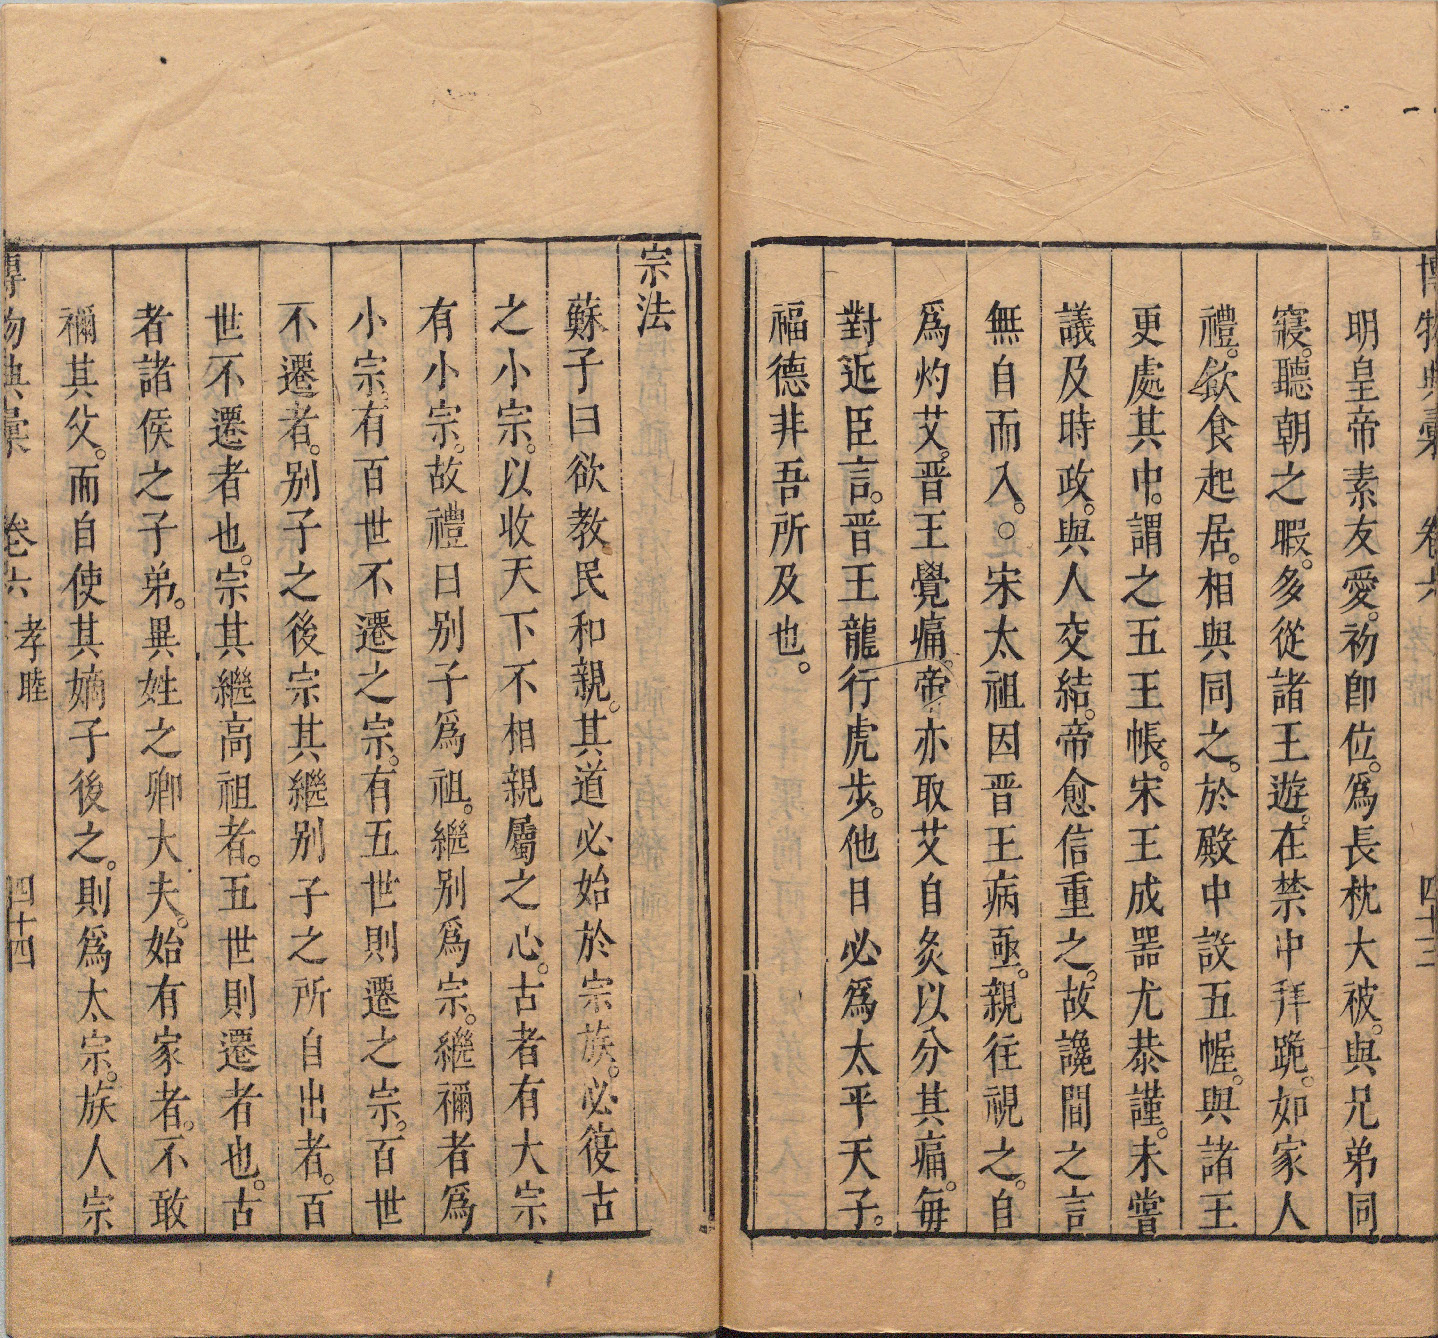 博物典彙　卷六　四十三
明皇帝素友愛。初卽位。爲長枕大被。與兄弟同
寢。聽朝之暇。多從諸王遊。在禁中拜跪。如家人
禮。飲食起居。相與同之。於殿中設五幄。與諸王
更處其中。謂之五王帳。宋王成噐尤恭謹。未嘗
議及時政。與人交結。帝愈信重之。故讒間之言
無自而入。○宋太祖因晋王病亟。親往視之。自
爲灼艾。晋王覺痛。帝亦取艾自灸以分其痛。每
對近臣言。晋王龍行虎步。他日必爲太平天子。
福德非吾所及也。
宗法
蘇子曰欲教民和親。其道必始於宗族。必復古
之小宗。以收天下不相親屬之心。古者有大宗
有小宗。故禮曰别子爲祖。繼别爲宗。繼禰者爲
小宗。有百世不遷之宗。有五世則遷之宗。百世
不遷者。别子之後宗其繼别子之所自出者。百
世不遷者也。宗其繼高祖者。五世則遷者也。古
者諸侯之子弟。異姓之卿大夫。始有家者。不敢
禰其父。而自使其嫡子後之。則爲太宗。族人宗
博物典彙　卷六　孝睦　四十四